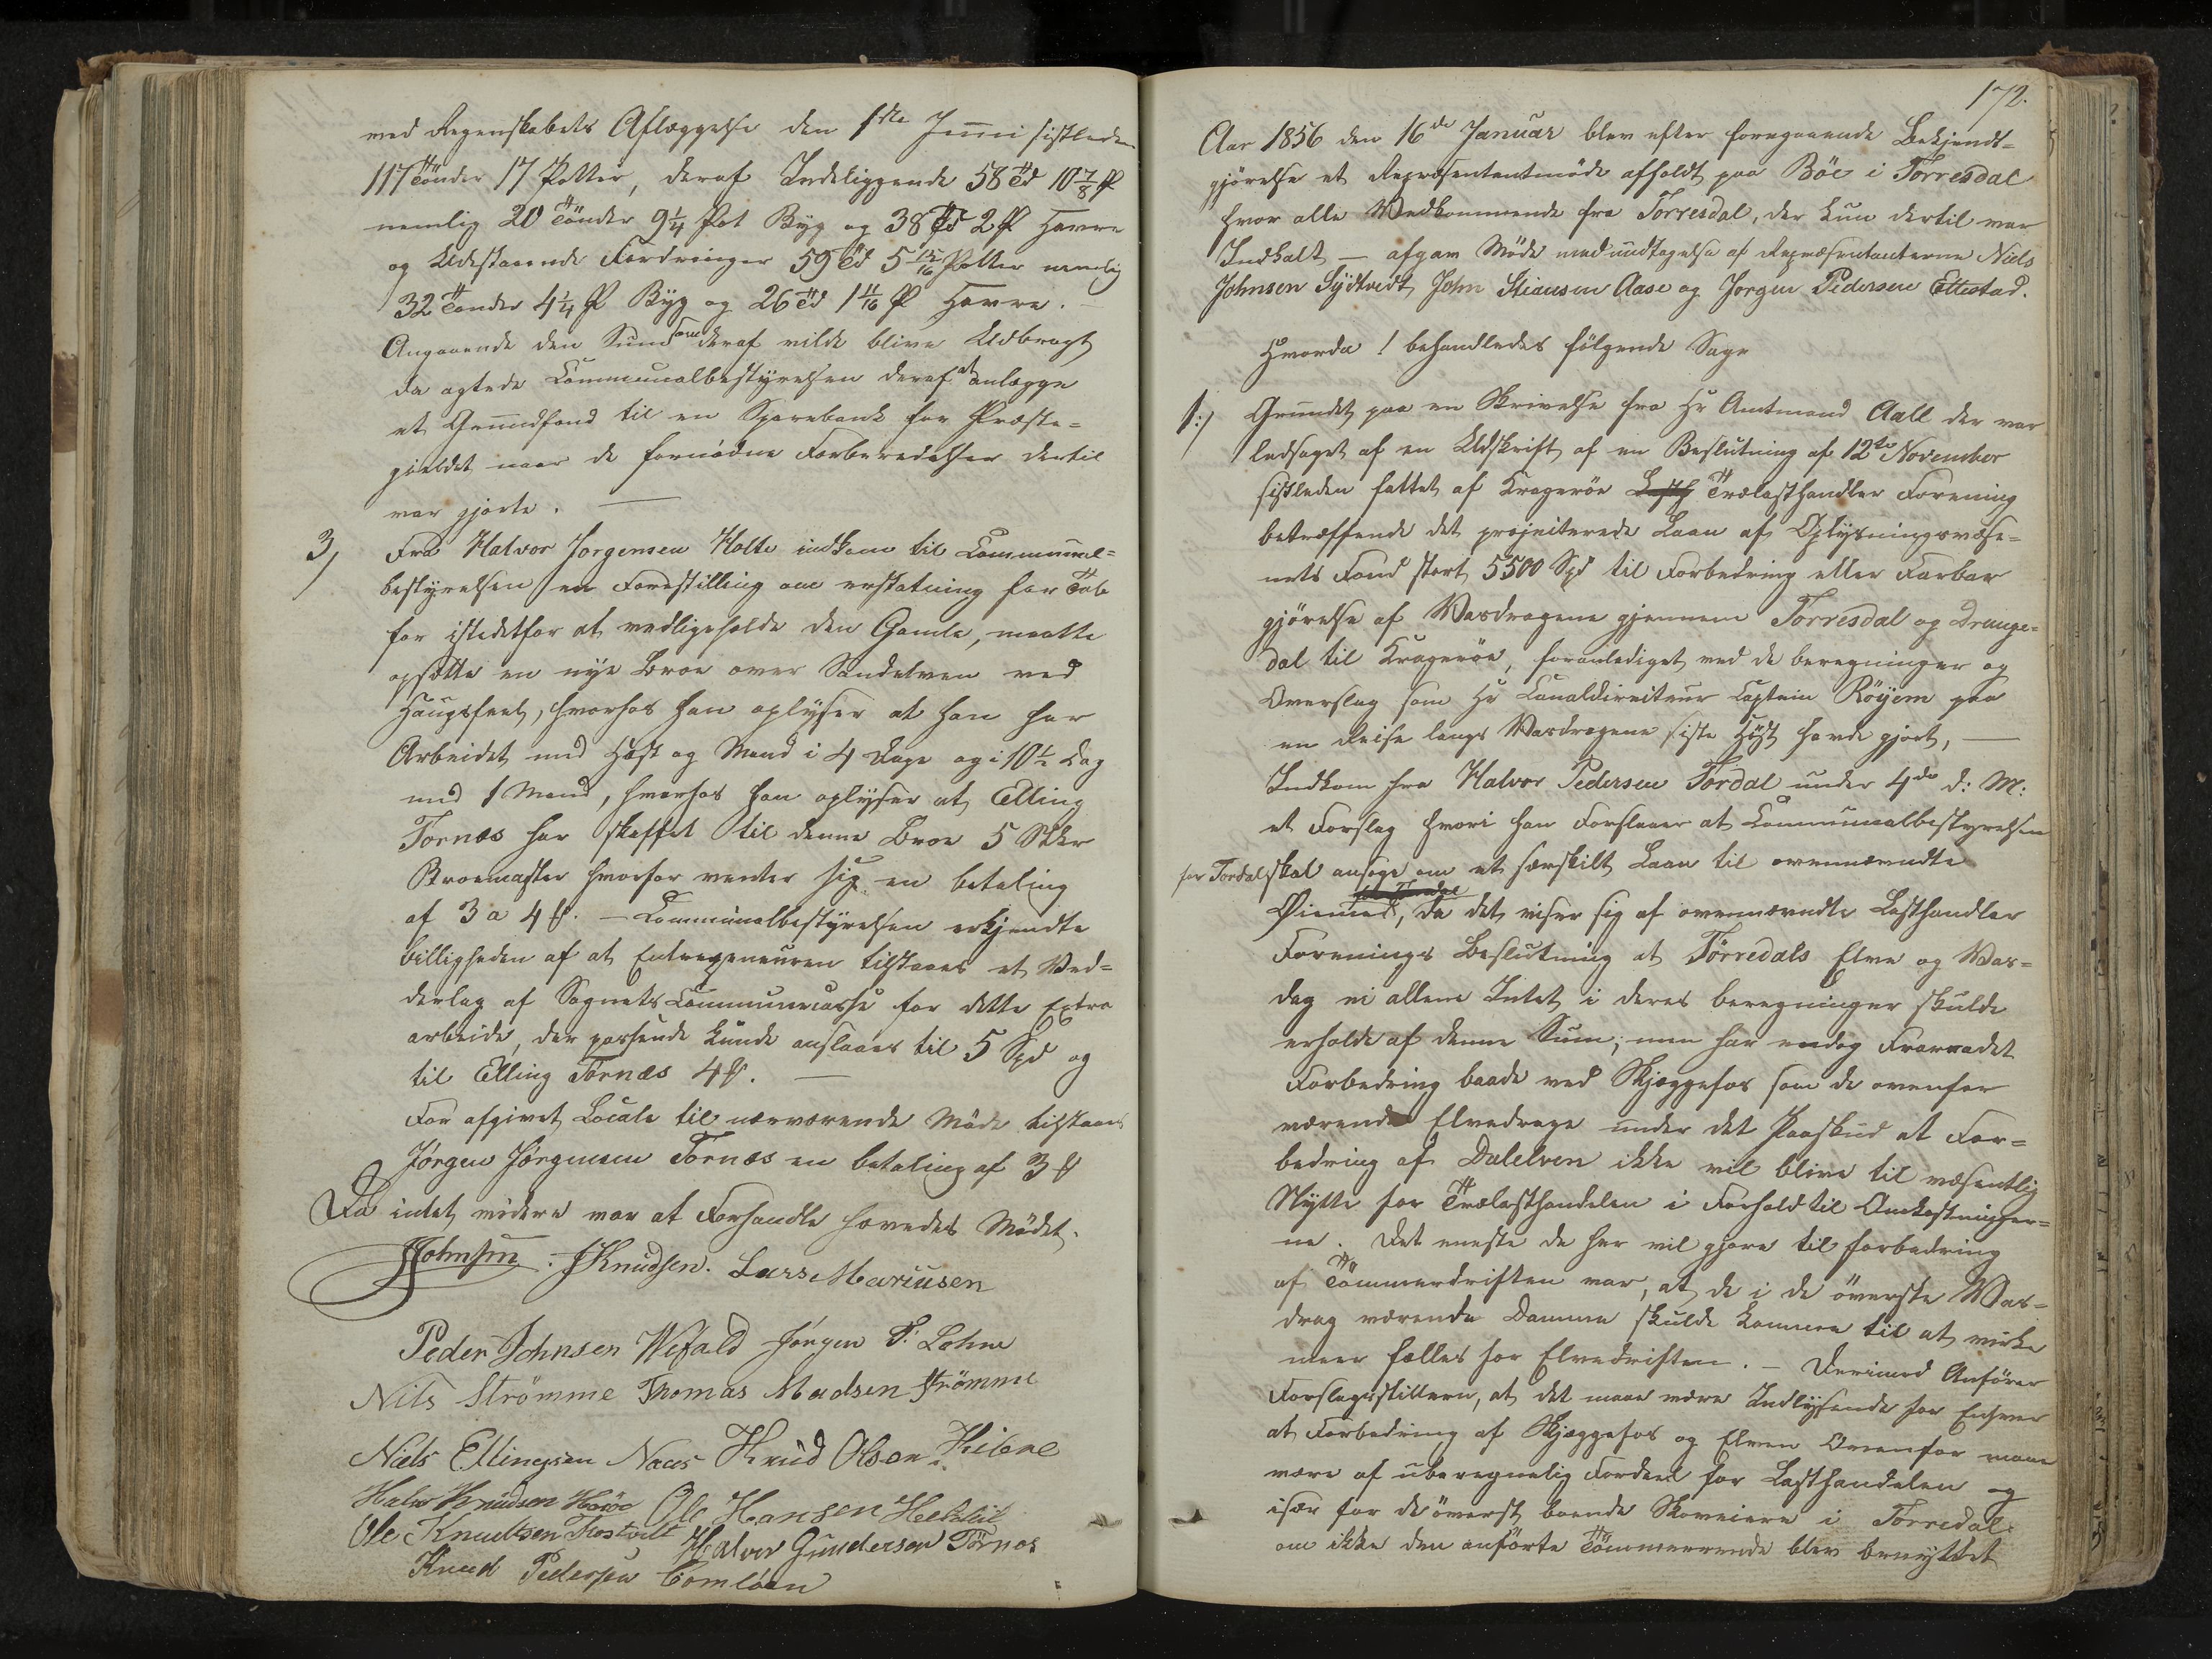 med Regenskabets Aflæggelse den 1ste Juni sistleden
117 Tönder 17 Potter, deraf Indeliggende 58 Td 10 7/8 P
nemlig 20 Tönder 9 1/4 Pot Byg og 38 Td 2 P Havre
og Udestaaende Fordringer 59 Td 5 15/16 Potter nemlig
32 Tönder 4 1/4 P Byg og 26 Td 1 11/16 P Havre.
Angaaende den Sum som deraf vilde blive Udbragt
da agtede Communalbestyrelsen deraf at anlægge
et Grundfond til en Sparebank for Præste-
gieldet naar de fornödne Forberedelser dertil
var gjorte. —
3) Fra Halvor Jorgensen Holte indkom til Communal-
bestyrelsen en Forestilling om erstatning for Tab
for istedetfor at vedligeholde den Gamle, maatte
opsætte en nye Broe over Sandelven ved
Haugsfeet, hvorhos han oplyser at han har
Arbeidet med Hest og Mand i 4 Dage og i 10 1/2 Dag
med 1 Mand, hvorhos han oplyser at Elling
Tornæs har skaffet til denne Broe 5 Stkr
Broemaster hvorfor venter sig en betaling
af 3 a 4 ß. — Communalbestyrelsen erkjendte
billigheden af at Entrepeneuren tilstaaes et Ved-
derlag af Sognets Communecasse for dette Extra
arbeide, der passende kunde anslaaes til 5 Spd og
til Elling Tornæs 4 ß. —
For afgivet Locale til nærværende Möde tilstaaes
Jörgen Jörgensen Tornæs en betaling af 3 ß
Da intet videre var at Forhandle hævedes Mödet.
JJohnsen. JKnudsen. Lars Mariusen
Peder Johnsen Wefald Jörgen P. Lohne
Nils Strömme Thomas Madsen Strömme
Niels Ellingsen Naas Knud Olsen Kilene
Halvo Knudsen Ole Hansen
Ole Knudtsen Halvor Gunderson Törnes
Knud Pedersen Tomlöen
172.
Aar 1856 den 16de Januar blev efter foregaaende Bekjendt-
gjörelse et Repræsentantmöde afholdt paa Böe i Törresdal
hvor alle Vedkommende fra Törresdal, der kun dertil var
Indkalt — afgav Möde med undtagelse af Repræsentanterne Niels
Johnsen Sydtvedt, John Stiansen Aase og Jörgen Pedersen Ettestad.
Hvorda! behandledes fölgende Sager
1:) Grundet paa en Skrivelse fra Hr Amtmand Aall der var
ledsaget af en Udskrift af en Beslutning af 12te November
sistleden fattet af Kragerøe Trælasthandler Forening
betræffende det projecterede Laan af Oplysningsvæse-
nets Fond stort 5500 Spd til Forbedring eller Farbar
gjörelse af Vasdragene gjennem Törresdal og Drange-
dal til Kragerøe, foranlediget ved de beregninger og
Overslag som Hr Canaldirecteur Captein Röyem paa
en Reise langs Vasdragene siste Höst havde gjort, —
Indkom fra Halvor Pedersen Tördal under 4de d: M:
et Forslag hvori han Forslaaer at Communalbestyrelsen
for Tordal skal ansöge om et særskilt Laan til ovennævndte
Øiemed, da det viser sig af ovennævndte Lasthandler
Forenings Beslutning at Törredals Elve og Vas-
drag ei allene Intet i deres beregninger skulde
erholde af denne Sum; men har endog Fraraadet
Forbedring baade ved Skjæggefos som de ovenfor
værende Elvedrage under det Paaskud at For-
bedring af Dalelven ikke vil blive til væsentlig
Nytte for Trælasthandelen i Forhold til Omkostninger-
ne. Det eneste de her vil gjöre til forbedring
af Tömmerdriften var, at de i de överste Vas-
drag værende Damme skulde komme til at virke
mere fælles for Elvedriften. — Derimod Anförer
Forslagsstilleren, at det maae være Indlysende for Enhver
at Forbedring af Skjæggefos og Elven Ovenfor maae
være af uberegnelig Fordeel for Lasthandelen og
især for de överst boende Skoveiere i Törredal
om ikke den anförte Tömmerrende blev benyttet